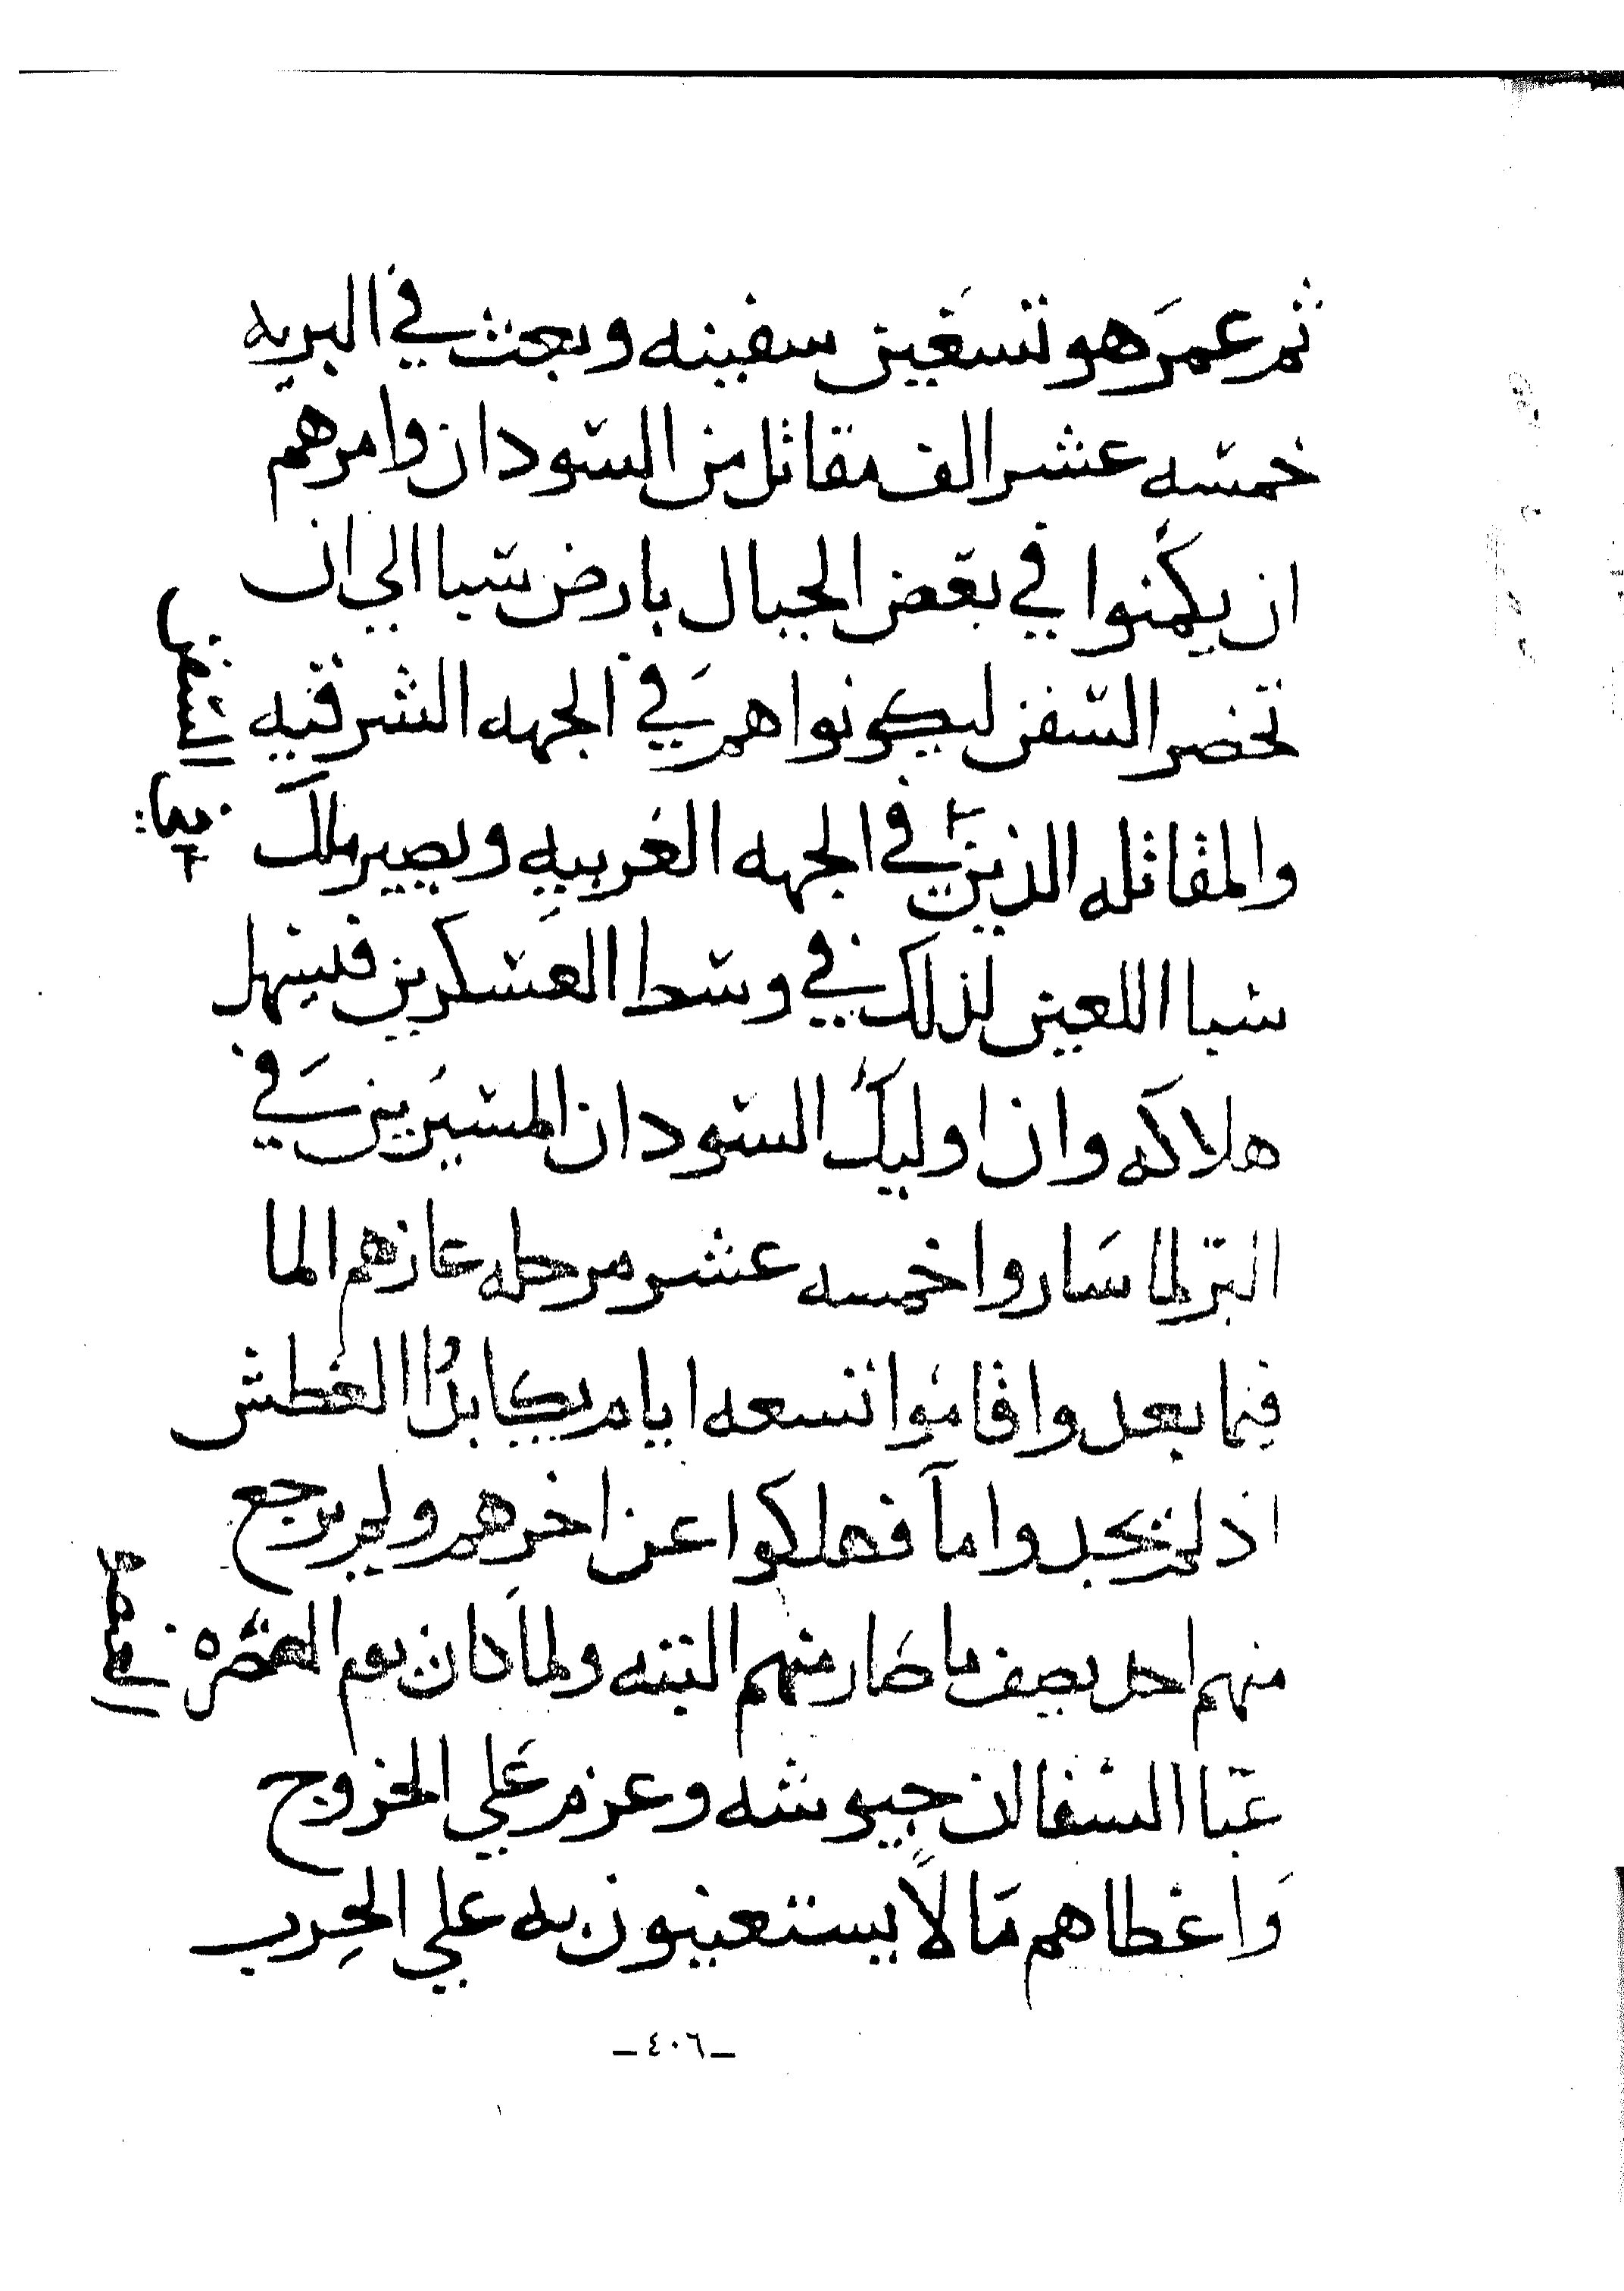 ثم عمر هو تسعين سفينه وبعث في البريه
خمسه عشر الف مقاتل من السودان وامرهم
ان يكمنوا في بعض الجبال بارض سبا الي ان
تحضر السفن ليكونوا هم في الجهه الشرقيه
والمقاتله الذين في الجهه الغربيه ويصير ملك
سبا اللعين لذلك في وسط العسكرين فيسهل
هلاكه وان اوليك السودان المسيرين في
البر لما ساروا خمسه عشر مرحله عازهم الما
فيما بعد واقاموا تسعه ايام يكابدوا العطش
اذ لم يجدوا ما فهلكوا عن اخرهم ولم يرجع
منهم احد يصف ما صار منهم البته ولما كان يوم العنصره
عبا السفان جيوشه وعزم علي الخروج
واعطاهم مالا يستعينون به علي الحرب
ـ ٤٠٦ ـ